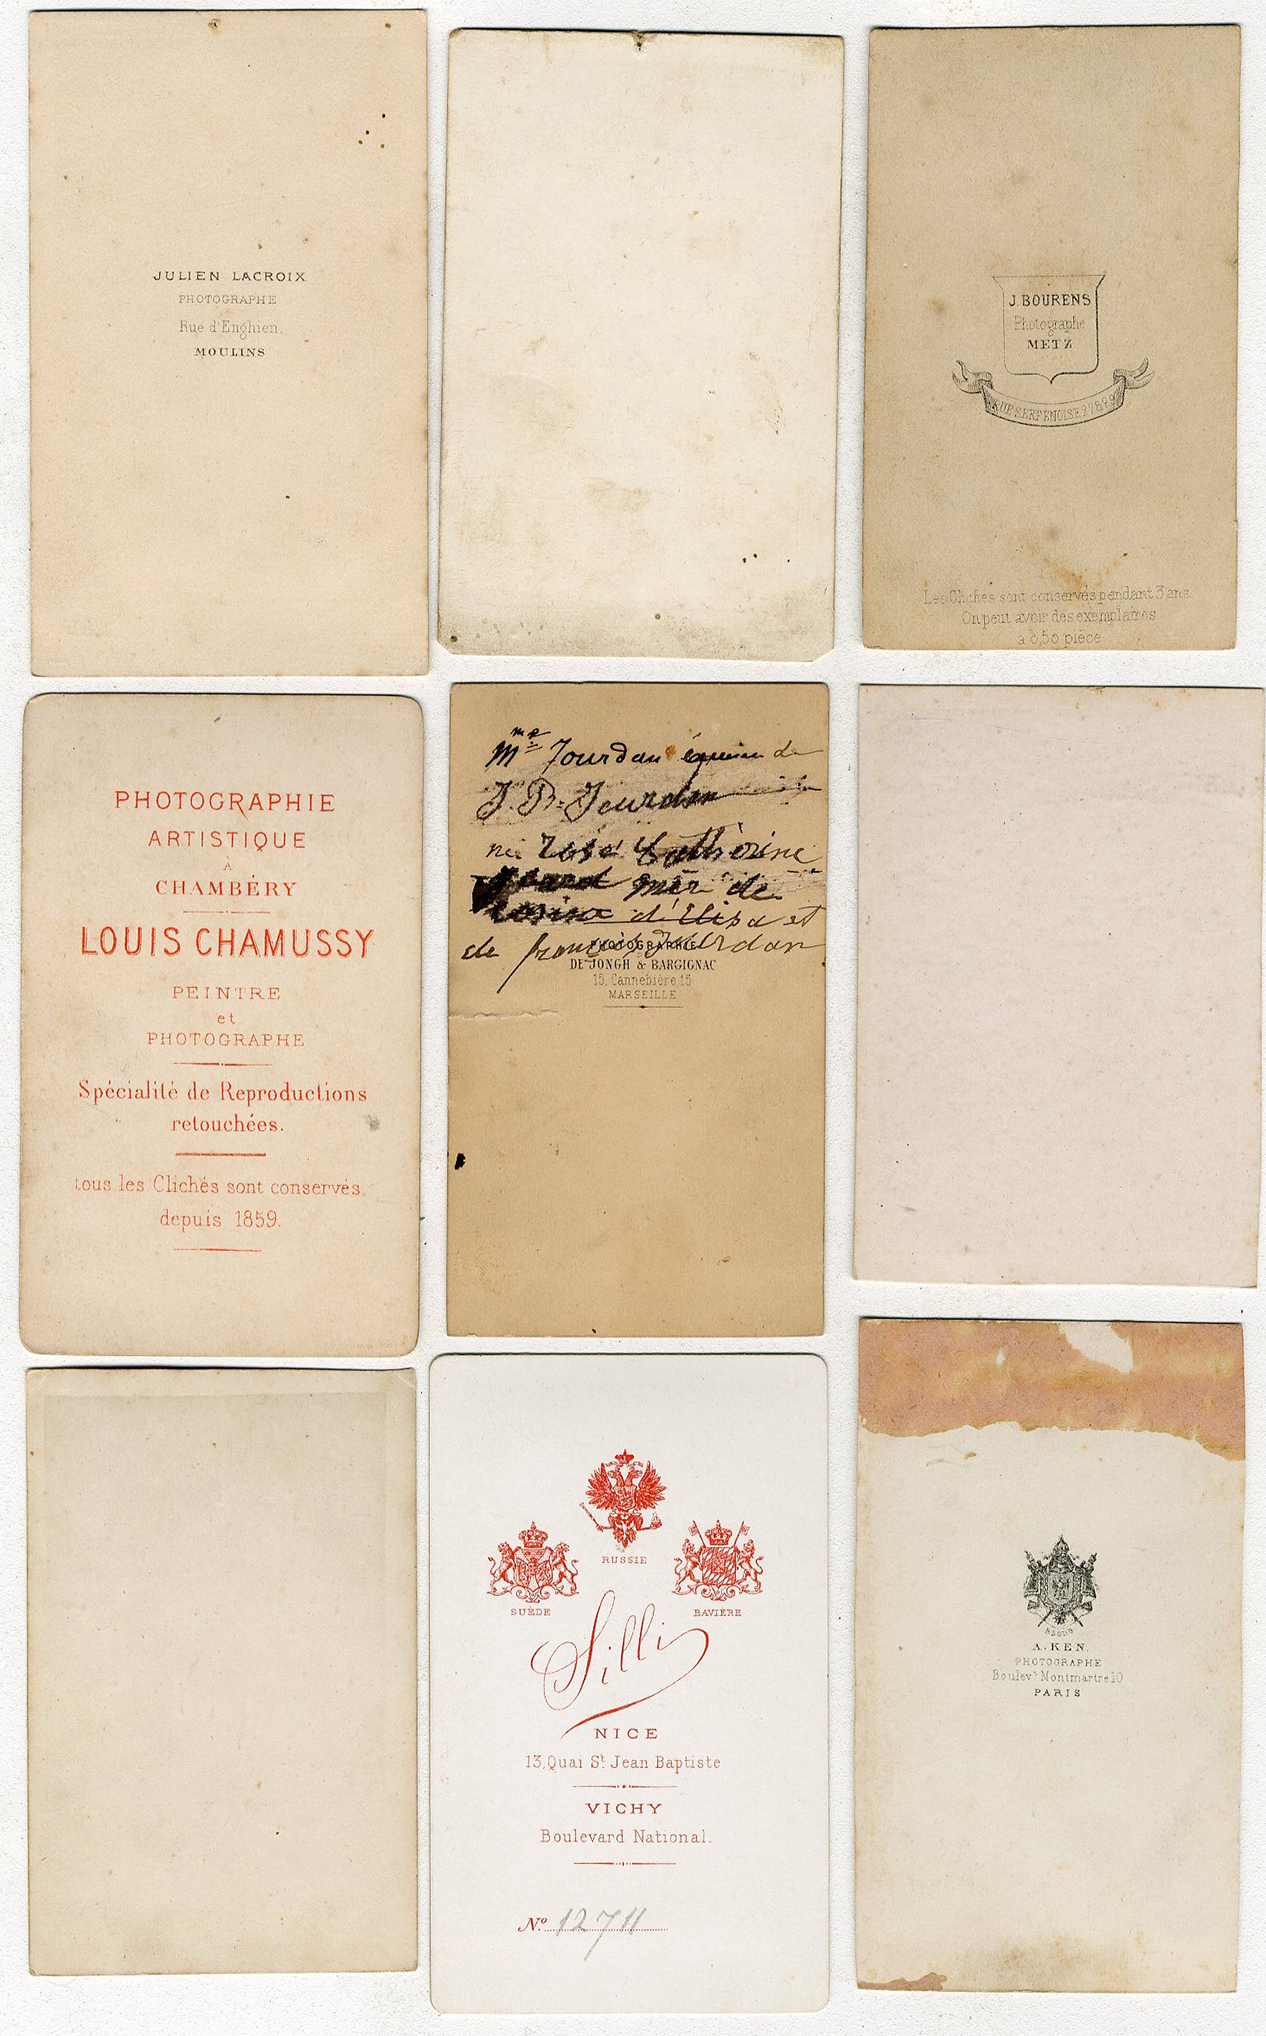 JULIEN LACROIX
PHOTOGRAPHE
Rue d'Enghien,
MOULINS
J. BOURENS
Photographe
METZ
RUE SERPENOISE
Les Clichés sont conservés pendant 3 ans.
On peut avoir des exemplaires
à 0,50 pièce
PHOTOGRAPHIE
ARTISTIQUE
À
CHAMBÉRY
LOUIS CHAMUSSY
PEINTRE
et
PHOTOGRAPHE
Spécialité de Reproductions
retouchées.
tous les Clichés sont conservés
depuis 1859.
Mme Jourdan de
J. B. Jourdan
née Rose Cathèrine
mèr de
d'Elisa et
de Jourdan
PHOTOGRAPHIE
DE JONGH & BARGIGNAC
15, Cannebière, 15
MARSEILLE
RUSSIE
SUÈDE
BAVIÈRE
Silli
NICE
13, Quai St Jean Baptiste
VICHY
Boulevard National.
No. 12711
A. KEN.
PHOTOGRAPHE
Boulevt Montmartre 10
PARIS